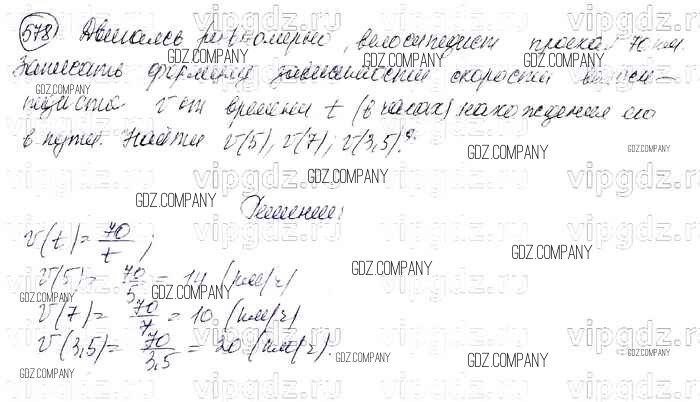 578) Двигаясь равномерно, велосипедист проехал 70 км.
Записать формулу зависимости скорости велоси-
педиста v от времени t (в часах) нахождения его
в пути. Найти v(5), v(7), v(3,5).
Решение:
v(t)= 70/t ;
v(5)= 70/5 = 14 (км/ч)
v(7)= 70/7 = 10 (км/ч)
v(3,5)= 70/3,5 = 20 (км/ч).
GDZ.COMPANY
vipgdz.ru